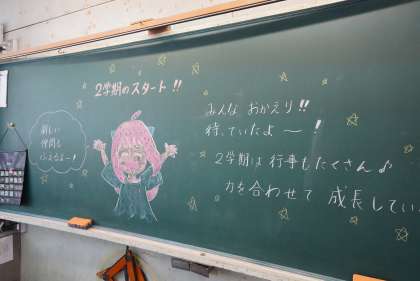 2学期のスタート!!
新しい
仲間も
ふえたよー!
みんな おかえり!!
待っていたよ〜!
2学期は行事もたくさん♪
力を合わせて 成長してい